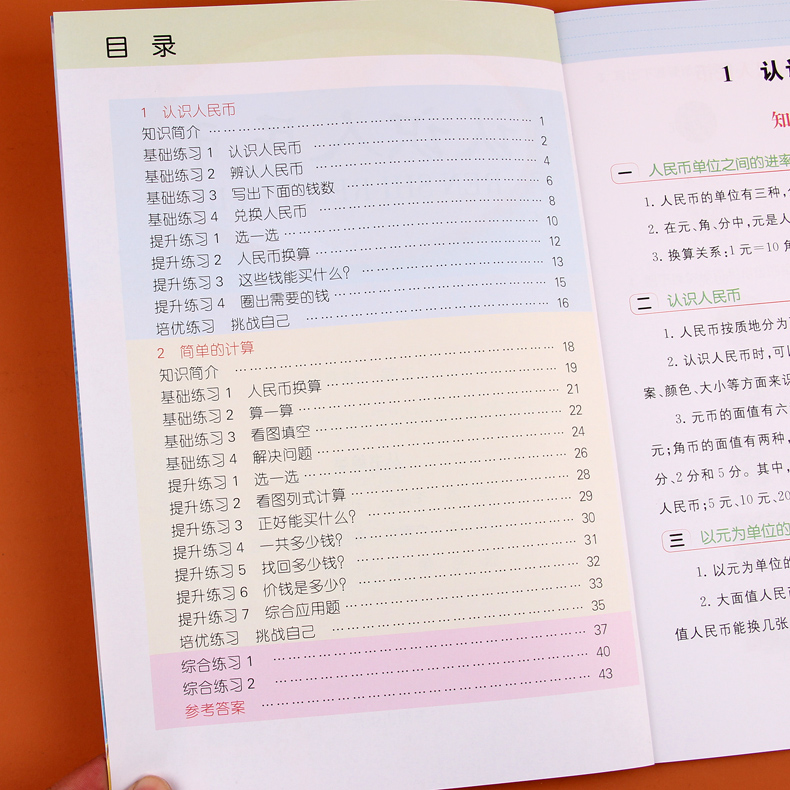 目 录
1 认识人民币
知识简介 …… 1
基础练习1 认识人民币 …… 2
基础练习2 辨认人民币 …… 4
基础练习3 写出下面的钱数 …… 6
基础练习4 兑换人民币 …… 8
提升练习1 选一选 …… 10
提升练习2 人民币换算 …… 12
提升练习3 这些钱能买什么? …… 13
提升练习4 圈出需要的钱 …… 15
培优练习 挑战自己 …… 16
2 简单的计算
知识简介 …… 18
基础练习1 人民币换算 …… 19
基础练习2 算一算 …… 21
基础练习3 看图填空 …… 22
基础练习4 解决问题 …… 24
提升练习1 选一选 …… 26
提升练习2 看图列式计算 …… 28
提升练习3 正好能买什么? …… 29
提升练习4 一共多少钱? …… 30
提升练习5 找回多少钱? …… 31
提升练习6 价钱是多少? …… 32
提升练习7 综合应用题 …… 33
培优练习 挑战自己 …… 35
综合练习1 …… 37
综合练习2 …… 40
参考答案 …… 43
1 认
知
一 人民币单位之间的进率
1. 人民币的单位有三种,
2. 在元、角、分中,元是人
3. 换算关系:1元=10角
二 认识人民币
1. 人民币按质地分为
2. 认识人民币时,可以
案、颜色、大小等方面来识
3. 元币的面值有六
元;角币的面值有两种,
分、2分和5分。其中,
人民币;5元、10元、20
三 以元为单位的
1. 以元为单位的
2. 大面值人民币
值人民币能换几张